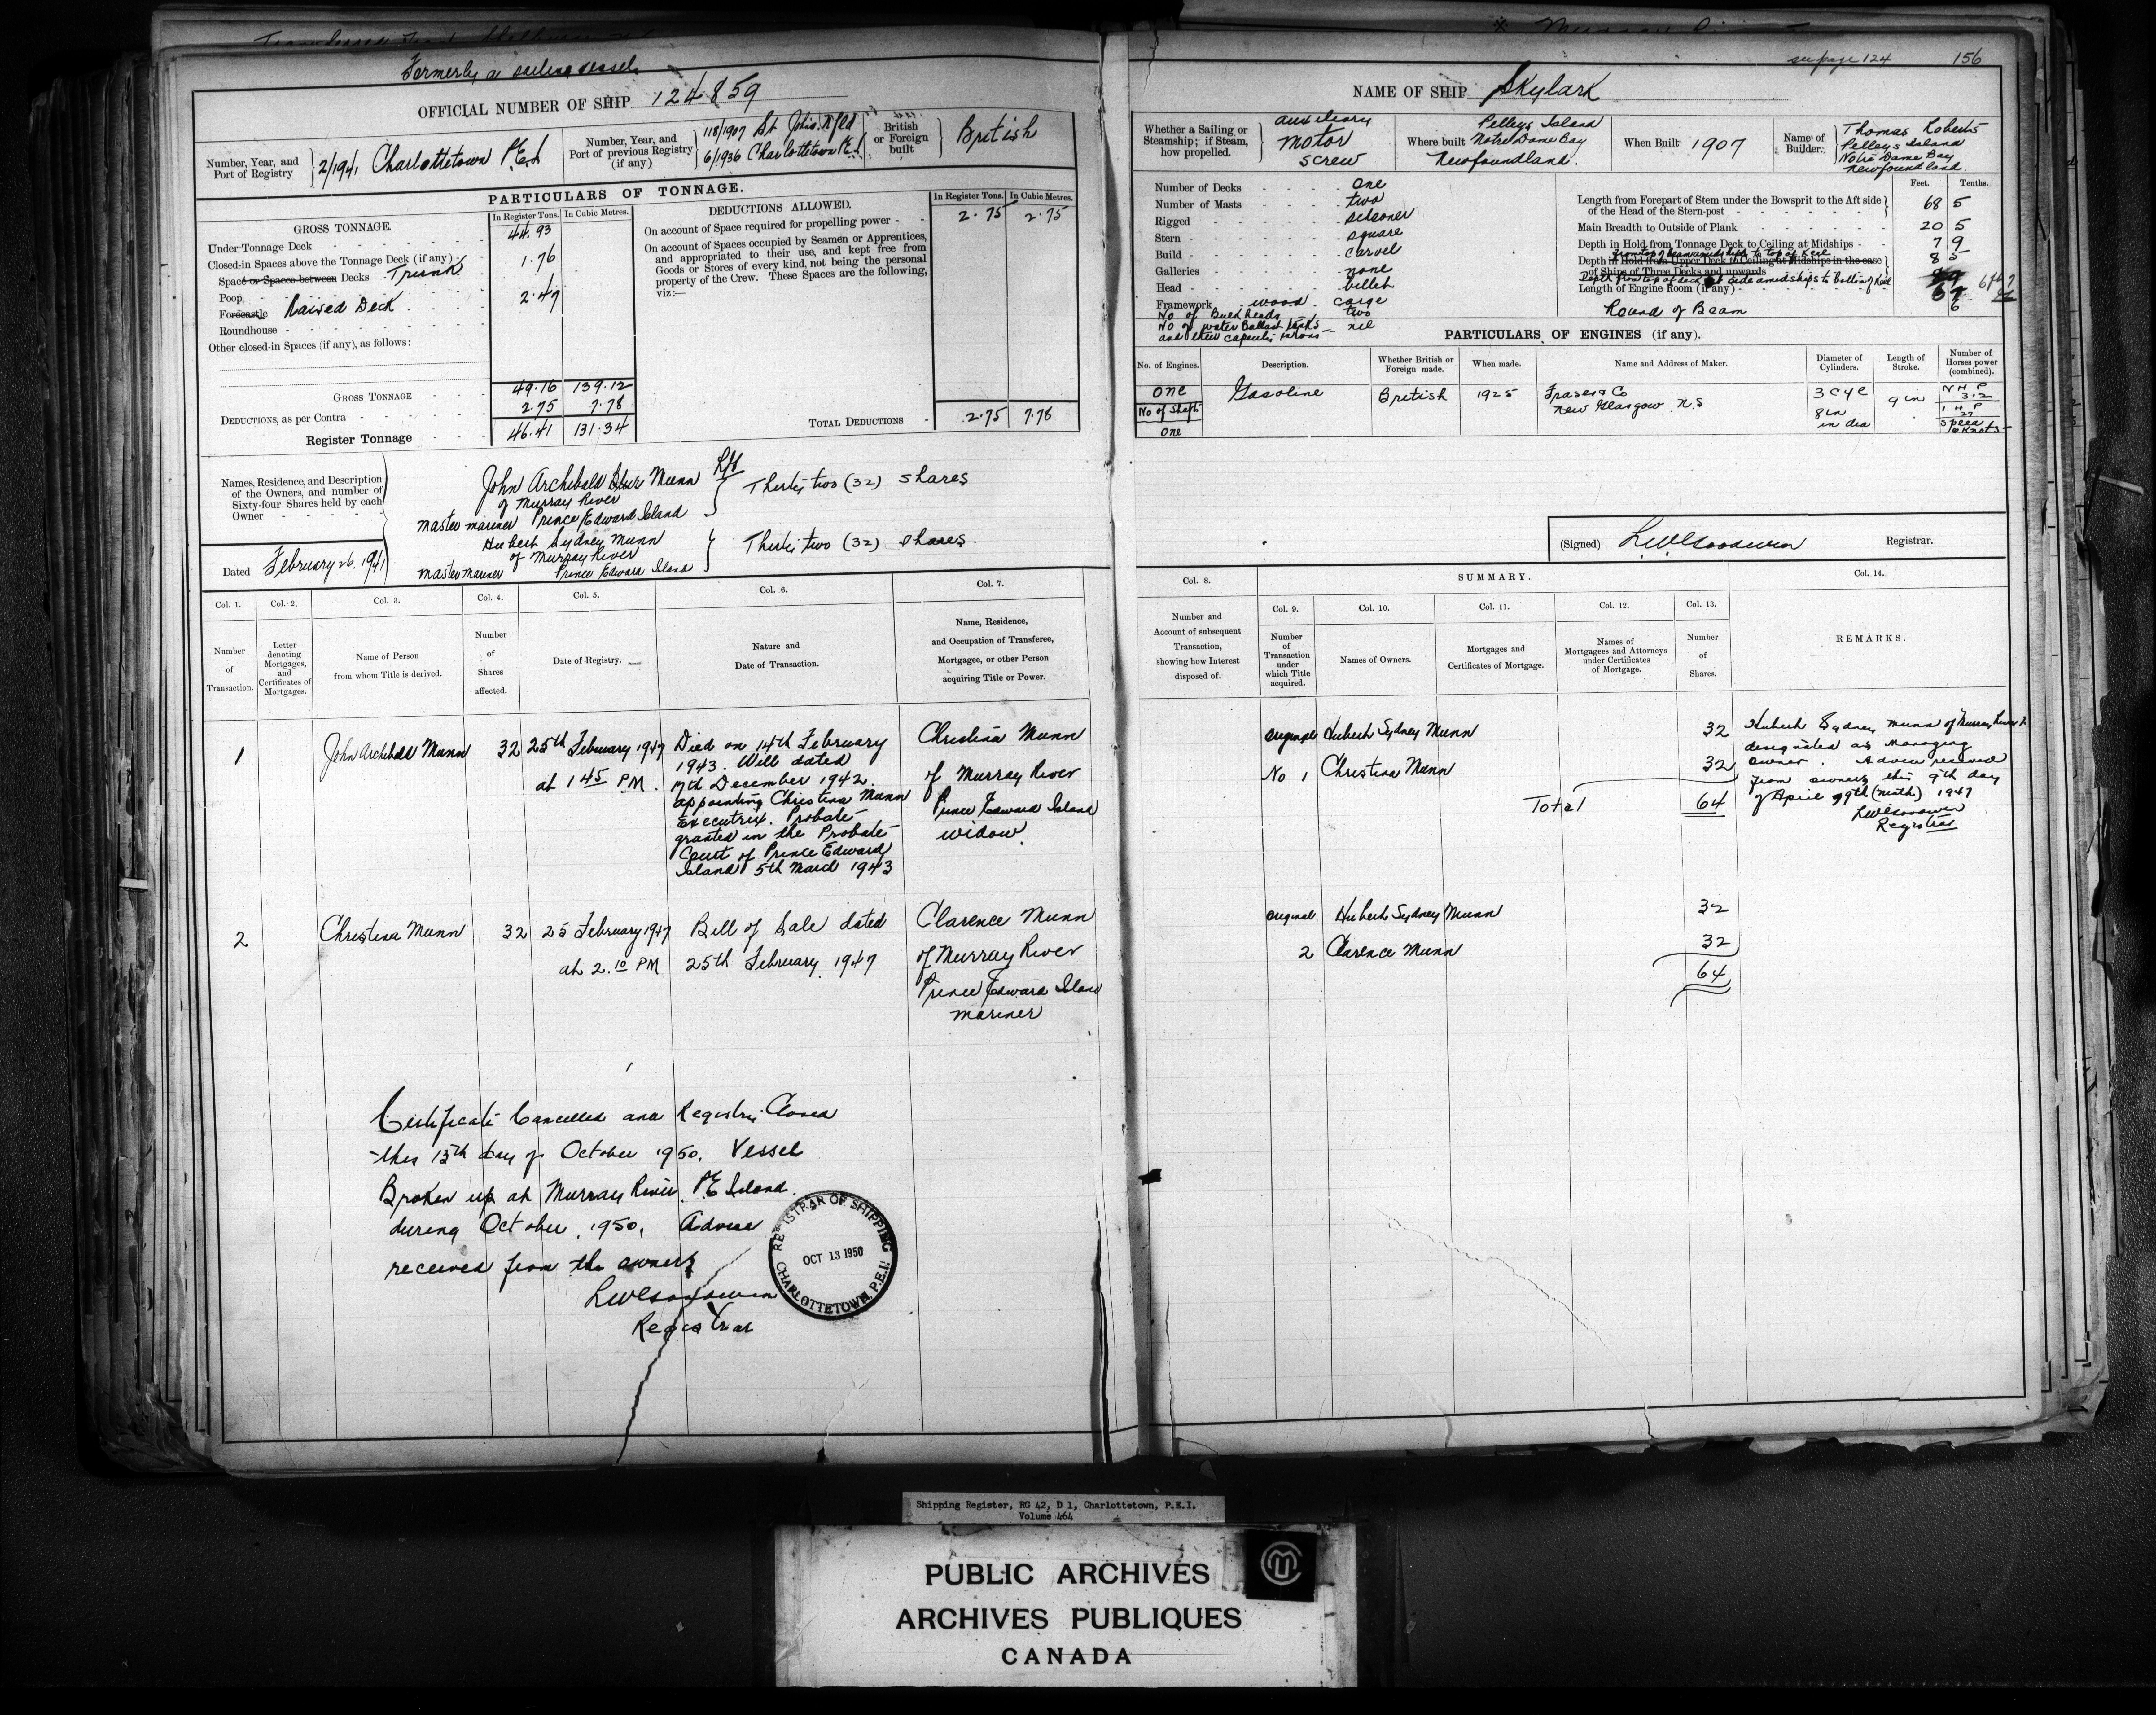 Formerly a sailing vessel
OFFICIAL NUMBER OF SHIP 124859
Number, Year, and Port of Registry
2/1941 Charlottetown P.E.I
Number, Year, and Port of previous Registry (if any)
118/1907 St Johns Nfld
6/1936 Charlottetown P.E.I
British or Foreign built
British
PARTICULARS OF TONNAGE.
GROSS TONNAGE.
In Register Tons. In Cubic Metres.
Under Tonnage Deck 44.93
Closed-in Spaces above the Tonnage Deck (if any)
Space or Spaces between Decks Trunk 1.76
Poop
Forecastle Raised Deck 2.47
Roundhouse
Other closed-in Spaces (if any), as follows:
GROSS TONNAGE 49.16 139.12
DEDUCTIONS, as per Contra 2.75 7.78
Register Tonnage 46.41 131.34
DEDUCTIONS ALLOWED.
In Register Tons. In Cubic Metres.
On account of Space required for propelling power 2.75 2.75
On account of Spaces occupied by Seamen or Apprentices, and appropriated to their use, and kept free from Goods or Stores of every kind, not being the personal property of the Crew. These Spaces are the following, viz:—
TOTAL DEDUCTIONS 2.75 7.78
Names, Residence, and Description of the Owners, and number of Sixty-four Shares held by each Owner
John Archibald Munn
of Murray River
master mariner Prince Edward Island
Thirty two (32) shares
Hubert Sydney Munn
of Murray River
master mariner Prince Edward Island
Thirty two (32) shares.
Dated February 26. 1941
Col. 1. Col. 2. Col. 3. Col. 4. Col. 5. Col. 6. Col. 7.
Number of Transaction.
Letter denoting Mortgages, and Certificates of Mortgages.
Name of Person from whom Title is derived.
Number of Shares affected.
Date of Registry.
Nature and Date of Transaction.
Name, Residence, and Occupation of Transferee, Mortgagee, or other Person acquiring Title or Power.
1
John Archibald Munn
32
25th February 1947
at 1 45 P.M.
Died on 14th February
1943. Will dated
17th December 1942.
appointing Christina Munn
Executrix. Probate
granted in the Probate
Court of Prince Edward
Island 5th March 1943
Christina Munn
of Murray River
Prince Edward Island
widow
2
Christina Munn
32
25 February 1947
at 2.10 PM
Bill of Sale dated
25th February 1947
Clarence Munn
of Murray River
Prince Edward Island
mariner
Certificate Cancelled and Registry Closed
this 13th day of October 1950. Vessel
Broken up at Murray River, P.E Island.
during October, 1950. Advice
received from the owners
LW Goodwin
Registrar
REGISTRAR OF SHIPPING
OCT 13 1950
CHARLOTTETOWN, P.E.I.
see page 124
156
NAME OF SHIP Skylark
Whether a Sailing or Steamship; if Steam, how propelled.
auxiliary
motor
screw
Where built
Pelleys Island
Notre Dame Bay
Newfoundland.
When Built 1907
Name of Builder.
Thomas Roberts
Pelleys Island
Notre Dame Bay
Newfoundland.
Number of Decks one
Number of Masts two
Rigged schooner
Stern square
Build carvel
Galleries none
Head billet
Framework wood
No of Bulkheads two
No of water Ballast tanks nil
and their capacity in tons
Feet. Tenths.
Length from Forepart of Stem under the Bowsprit to the Aft side of the Head of the Stern-post 68 5
Main Breadth to Outside of Plank 20 5
Depth in Hold from Tonnage Deck to Ceiling at Midships 7 9
from top of beam amidships to top of Keel
Depth in Hold from Upper Deck to Ceiling at Midships in the case of Ships of Three Decks and upwards 8 5
Depth from top of deck at side amidships to bottom of Keel
Length of Engine Room (if any)
Round of Beam 6
PARTICULARS OF ENGINES (if any).
No. of Engines. Description. Whether British or Foreign made. When made. Name and Address of Maker. Diameter of Cylinders. Length of Stroke. Number of Horses power (combined).
one
No of Shafts
one
Gasoline
British
1925
Fraser & Co
New Glasgow N.S
3 Cyl
8 in
in dia
9 in
N H P
3.2
I H P
22
Speed
6 Knots
(Signed) LW Goodwin Registrar.
Col. 8.
SUMMARY.
Col. 14.
Col. 9. Col. 10. Col. 11. Col. 12. Col. 13.
Number and Account of subsequent Transaction, showing how Interest disposed of.
Number of Transaction under which Title acquired.
Names of Owners.
Mortgages and Certificates of Mortgage.
Names of Mortgagees and Attorneys under Certificates of Mortgage.
Number of Shares.
REMARKS.
original Hubert Sydney Munn 32
No 1 Christina Munn 32
Total 64
Hubert Sydney Munn of Murray River
designated as managing
owner. Advice received
from owners this 9th day
of April 9th (ninth) 1947
LW Goodwin
Registrar
original Hubert Sydney Munn 32
2 Clarence Munn 32
64
Shipping Register, RG 42, D 1, Charlottetown, P.E.I.
Volume 464
PUBLIC ARCHIVES
ARCHIVES PUBLIQUES
CANADA